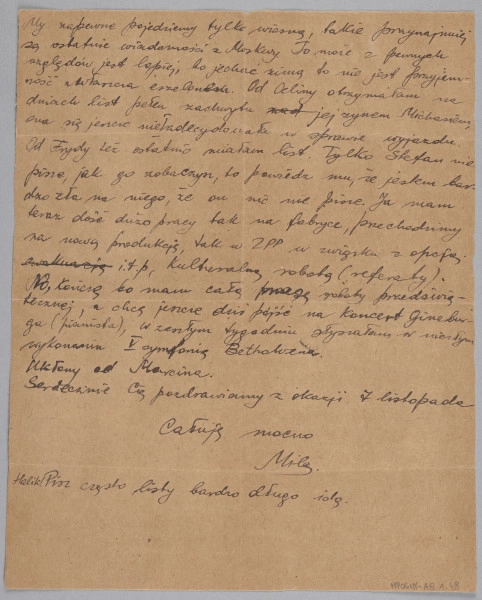 My zapewne pojedziemy tylko wiosną, takie przynajmniej
są ostatnie wiadomości z Moskwy. To może z pewnych
względów jest lepiej, bo jechać zimą to nie jest przyjem-
ność zwłaszcza eszelonem. Od Celiny otrzymałam na
dniach list pełen zachwytu jej synem Michasiem,
ona się jeszcze nie zdecydowała w sprawie wyjazdu.
Od Frydy też ostatnio miałam list. Tylko Stefan nie
pisze, jak go zobaczysz, to powiedz mu, że jestem bar-
dzo zła na niego, że on nic nie pisze. Ja mam
teraz dość dużo pracy tak na fabryce, przechodzimy
na nową produkcję, tak w ZPP w związku z opcją
i.t.p, kulturalną robotą (referaty).
No, kończę bo mam całą roboty przedświą-
tecznej, a chcę jeszcze dziś pójść na koncert Ginsbur-
ga (pianista), w zeszłym tygodniu słyszałam w niezłym
wykonaniu V symfonię Bethowena.
Ukłony od Marcina.
Serdecznie Cię pozdrawiamy z okazji 7 listopada
Całuję mocno
Mila.
Halik! Pisz często listy bardzo długo idą.